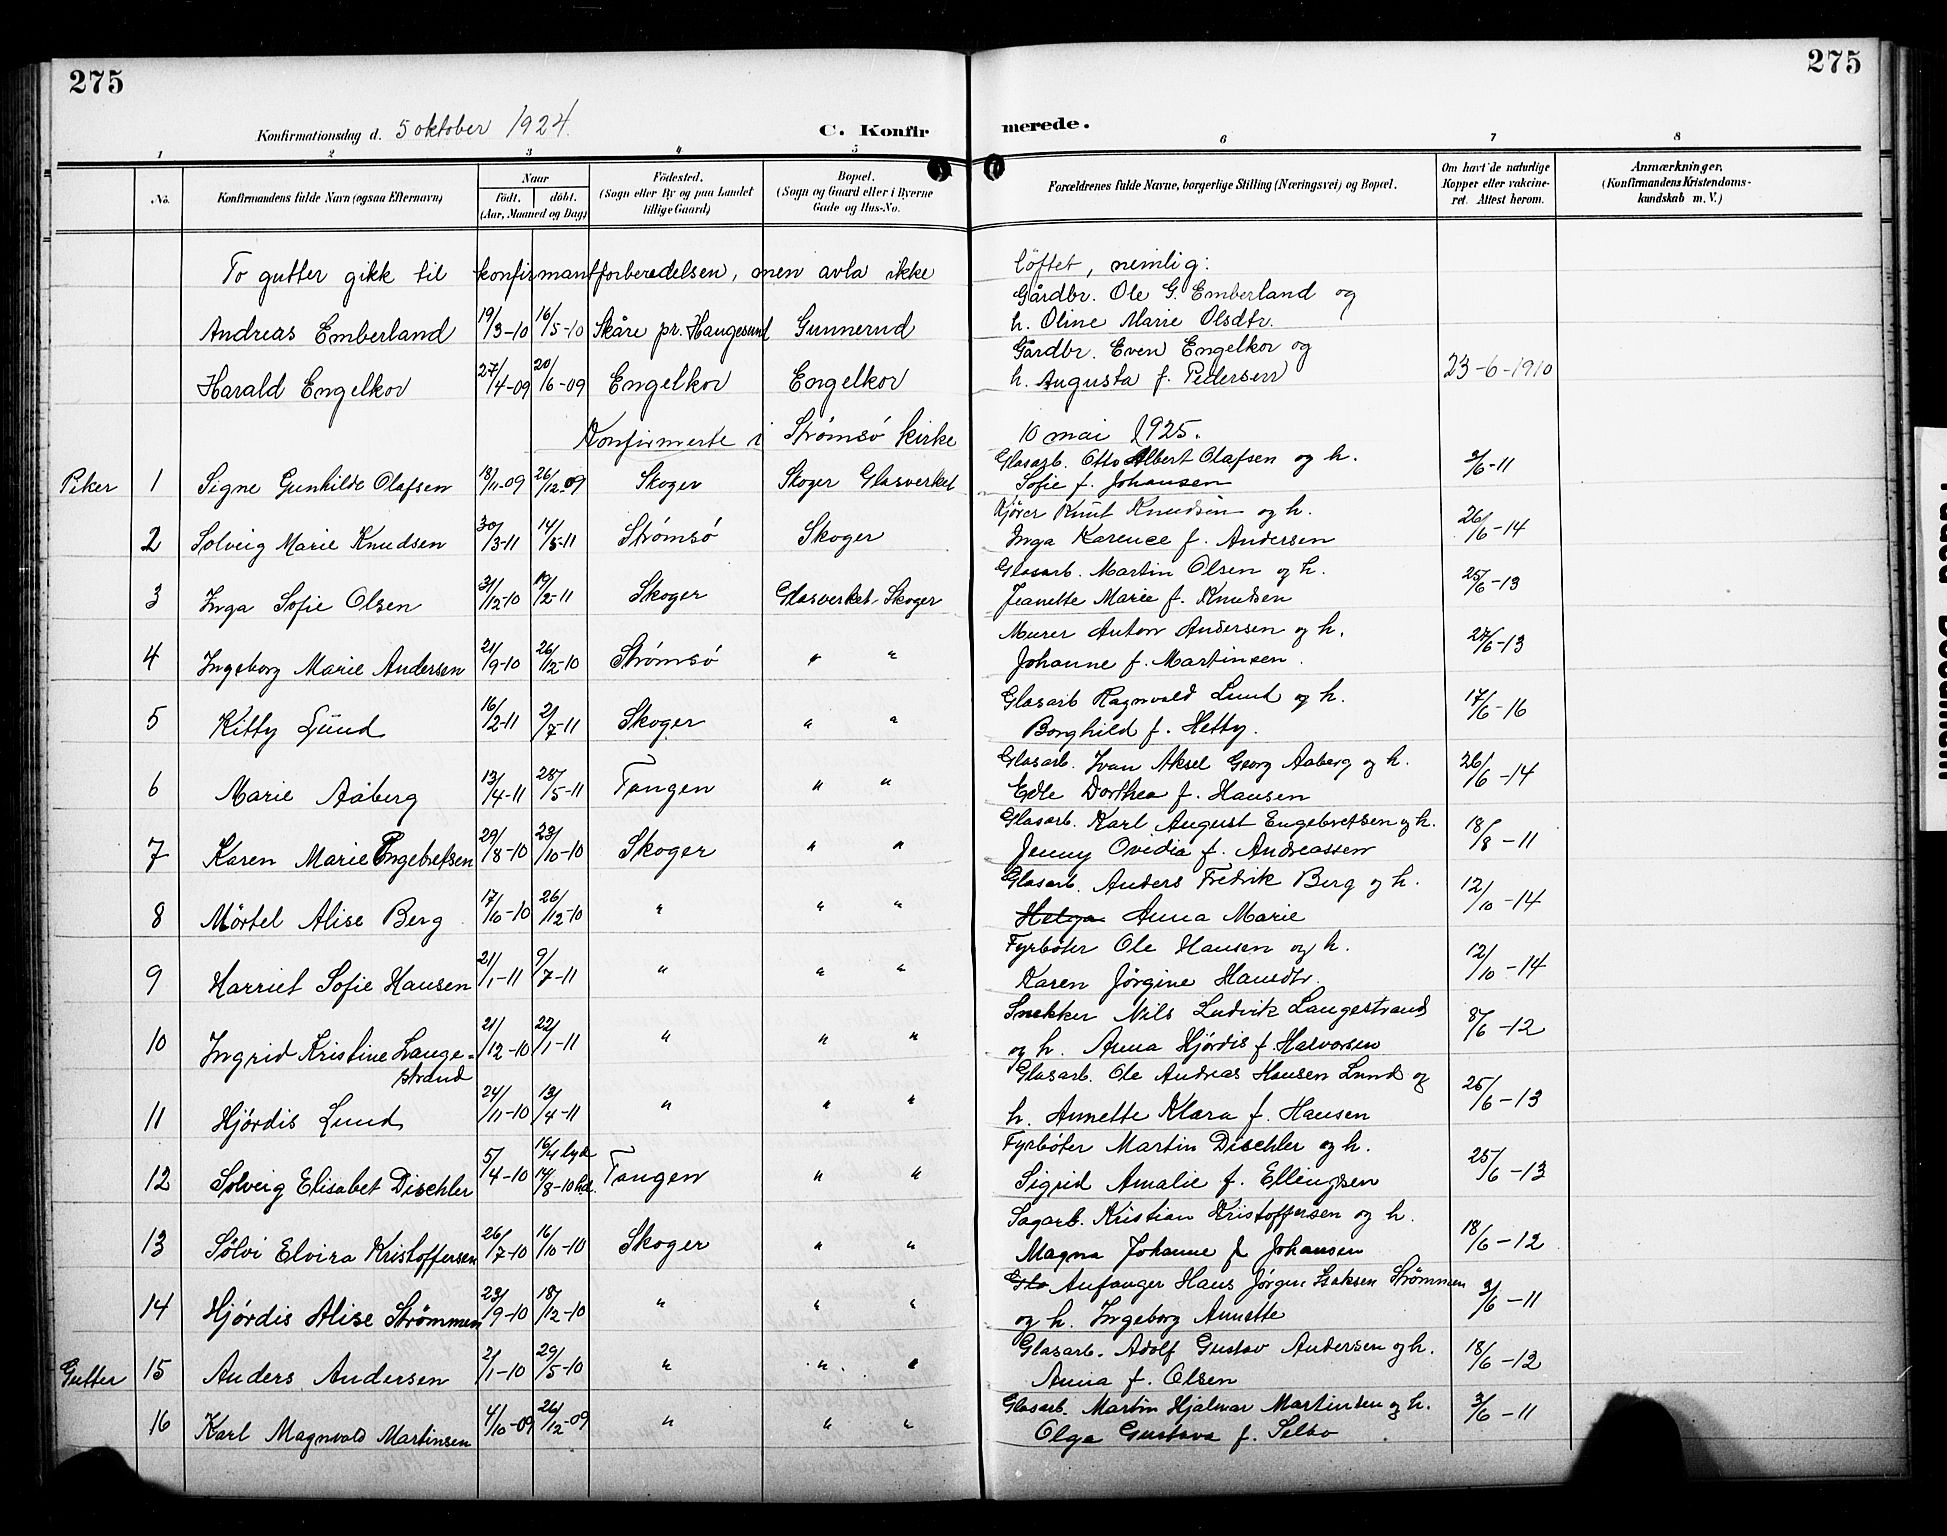 275
275
Konfirmationsdag d. 5 oktober 1924.
C. Konfir merede.
1 2 3 4 5 6 7 8
No.
Konfirmandens fulde Navn (ogsaa Efternavn)
Naar
født. døbt.
(Aar, Maaned og Dag)
Fødested.
(Sogn eller By og paa Landet
tillige Gaard)
Bopæl.
(Sogn og Gaard eller i Byerne
Gade og Hus-No.
Forældrenes fulde Navne, borgerlige Stilling (Næringsvei) og Bopæl.
Om havt de naturlige
Kopper eller vakcine-
ret. Attest herom.
Anmærkninger.
(Konfirmandens Kristendoms-
kundskab m. V.)
To gutter gikk til konfirmantforberedelsen, men avla ikke løftet, nemlig:
Gårdbr. Ole G. Emberland og
Andreas Emberland 19/3-10 16/5-10 Skåre pr. Haugesund Gunnerud h. Oline Marie Olsdtr.
Gårdbr. Even Engelkor og
Harald Engelkor 27/4-09 20/6-09 Engelkor Engelkor h. Augusta f. Pedersen 23-6-1910
Konfirmerte i Strømsø kirke 10 mai 1925.
Glasarb. Otto Albert Olafsen og h.
Piker 1 Signe Gunhilde Olafsen 18/11-09 26/12-09 Skoger Skoger Glasverket Sofie f. Johansen 2/6-11
Kjører Knut Knudsen og h.
2 Solveig Marie Knudsen 30/3-11 14/5-11 Strømsø Skoger Inga Karence f. Andersen 26/6-14
Glasarb. Martin Olsen og h.
3 Inga Sofie Olsen 31/12-10 19/2-11 Skoger Glasverket-Skoger Jeanette Marie f. Knudsen 25/6-13
Murer Anton Andersen og h.
4 Ingeborg Marie Andersen 21/9-10 26/12-10 Strømsø " " Johanne f. Martinsen. 27/6-13
Glasarb Ragnvald Lund og h.
5 Kitty Lund 16/2-11 2/7-11 Skoger " " Borghild f. Hetty. 17/6-16
Glasarb. Ivan Aksel Georg Aaberg og h.
6 Marie Aaberg 13/4-11 28/5-11 Tangen " " Edle Dorthea f. Hansen 26/6-14
Glasarb. Karl August Engebretsen og h.
7 Karen Marie Engebretsen 29/8-10 23/10-10 Skoger " " Jenny Ovidia f. Andreassen 18/8-11
Glasarb. Anders Fredrik Berg og h.
8 Mørtel Alise Berg 17/10-10 26/12-10 " " " Helga Anna Marie 12/10-14
Fyrbøter Ole Hansen og h.
9 Harriet Sofie Hansen 21/1-11 9/7-11 " " " Karen Jørgine Hansdtr. 12/10-14
Snekker Nils Ludvik Langestrand
10 Ingrid Kristine Lange- 21/12-10 22/1-11 " " " og h. Anna Hjørdis f. Halvorsen 8/6-12
strand
Glasarb. Ole Andreas Hansen Lund og
11 Hjørdis Lund 24/11-10 13/4-11 " " " h. Annette Klara f. Hansen 25/6-13
16/4 Fyrbøter Martin Dischler og h.
12 Solveig Elisabet Dischler 5/4-10 14/8-10 Tangen " " Sigrid Amalie f. Ellingsen 25/6-13
Sagarb. Kristian Kristoffersen og h.
13 Sølvi Elvira Kristoffersen 26/7-10 16/10-10 Skoger " " Magna Johanne f. Johansen 18/6-12
Gla Anfanger Hans Jørgen Isaksen Strømmen
14 Hjørdis Alise Strømmen 23/9-10 18/12-10 " " " og h. Ingeborg Annette 3/6-11
Glasarb. Adolf Gustav Andersen og h.
Gutter 15 Anders Andersen 2/1-10 29/5-10 " " " Anna f. Olsen 18/6-12
Glasarb. Martin Hjalmar Martinsen og h.
16 Karl Magnvald Martinsen 4/10-09 26/12-09 " " " Olga Gustava f. Selbo 3/6-11